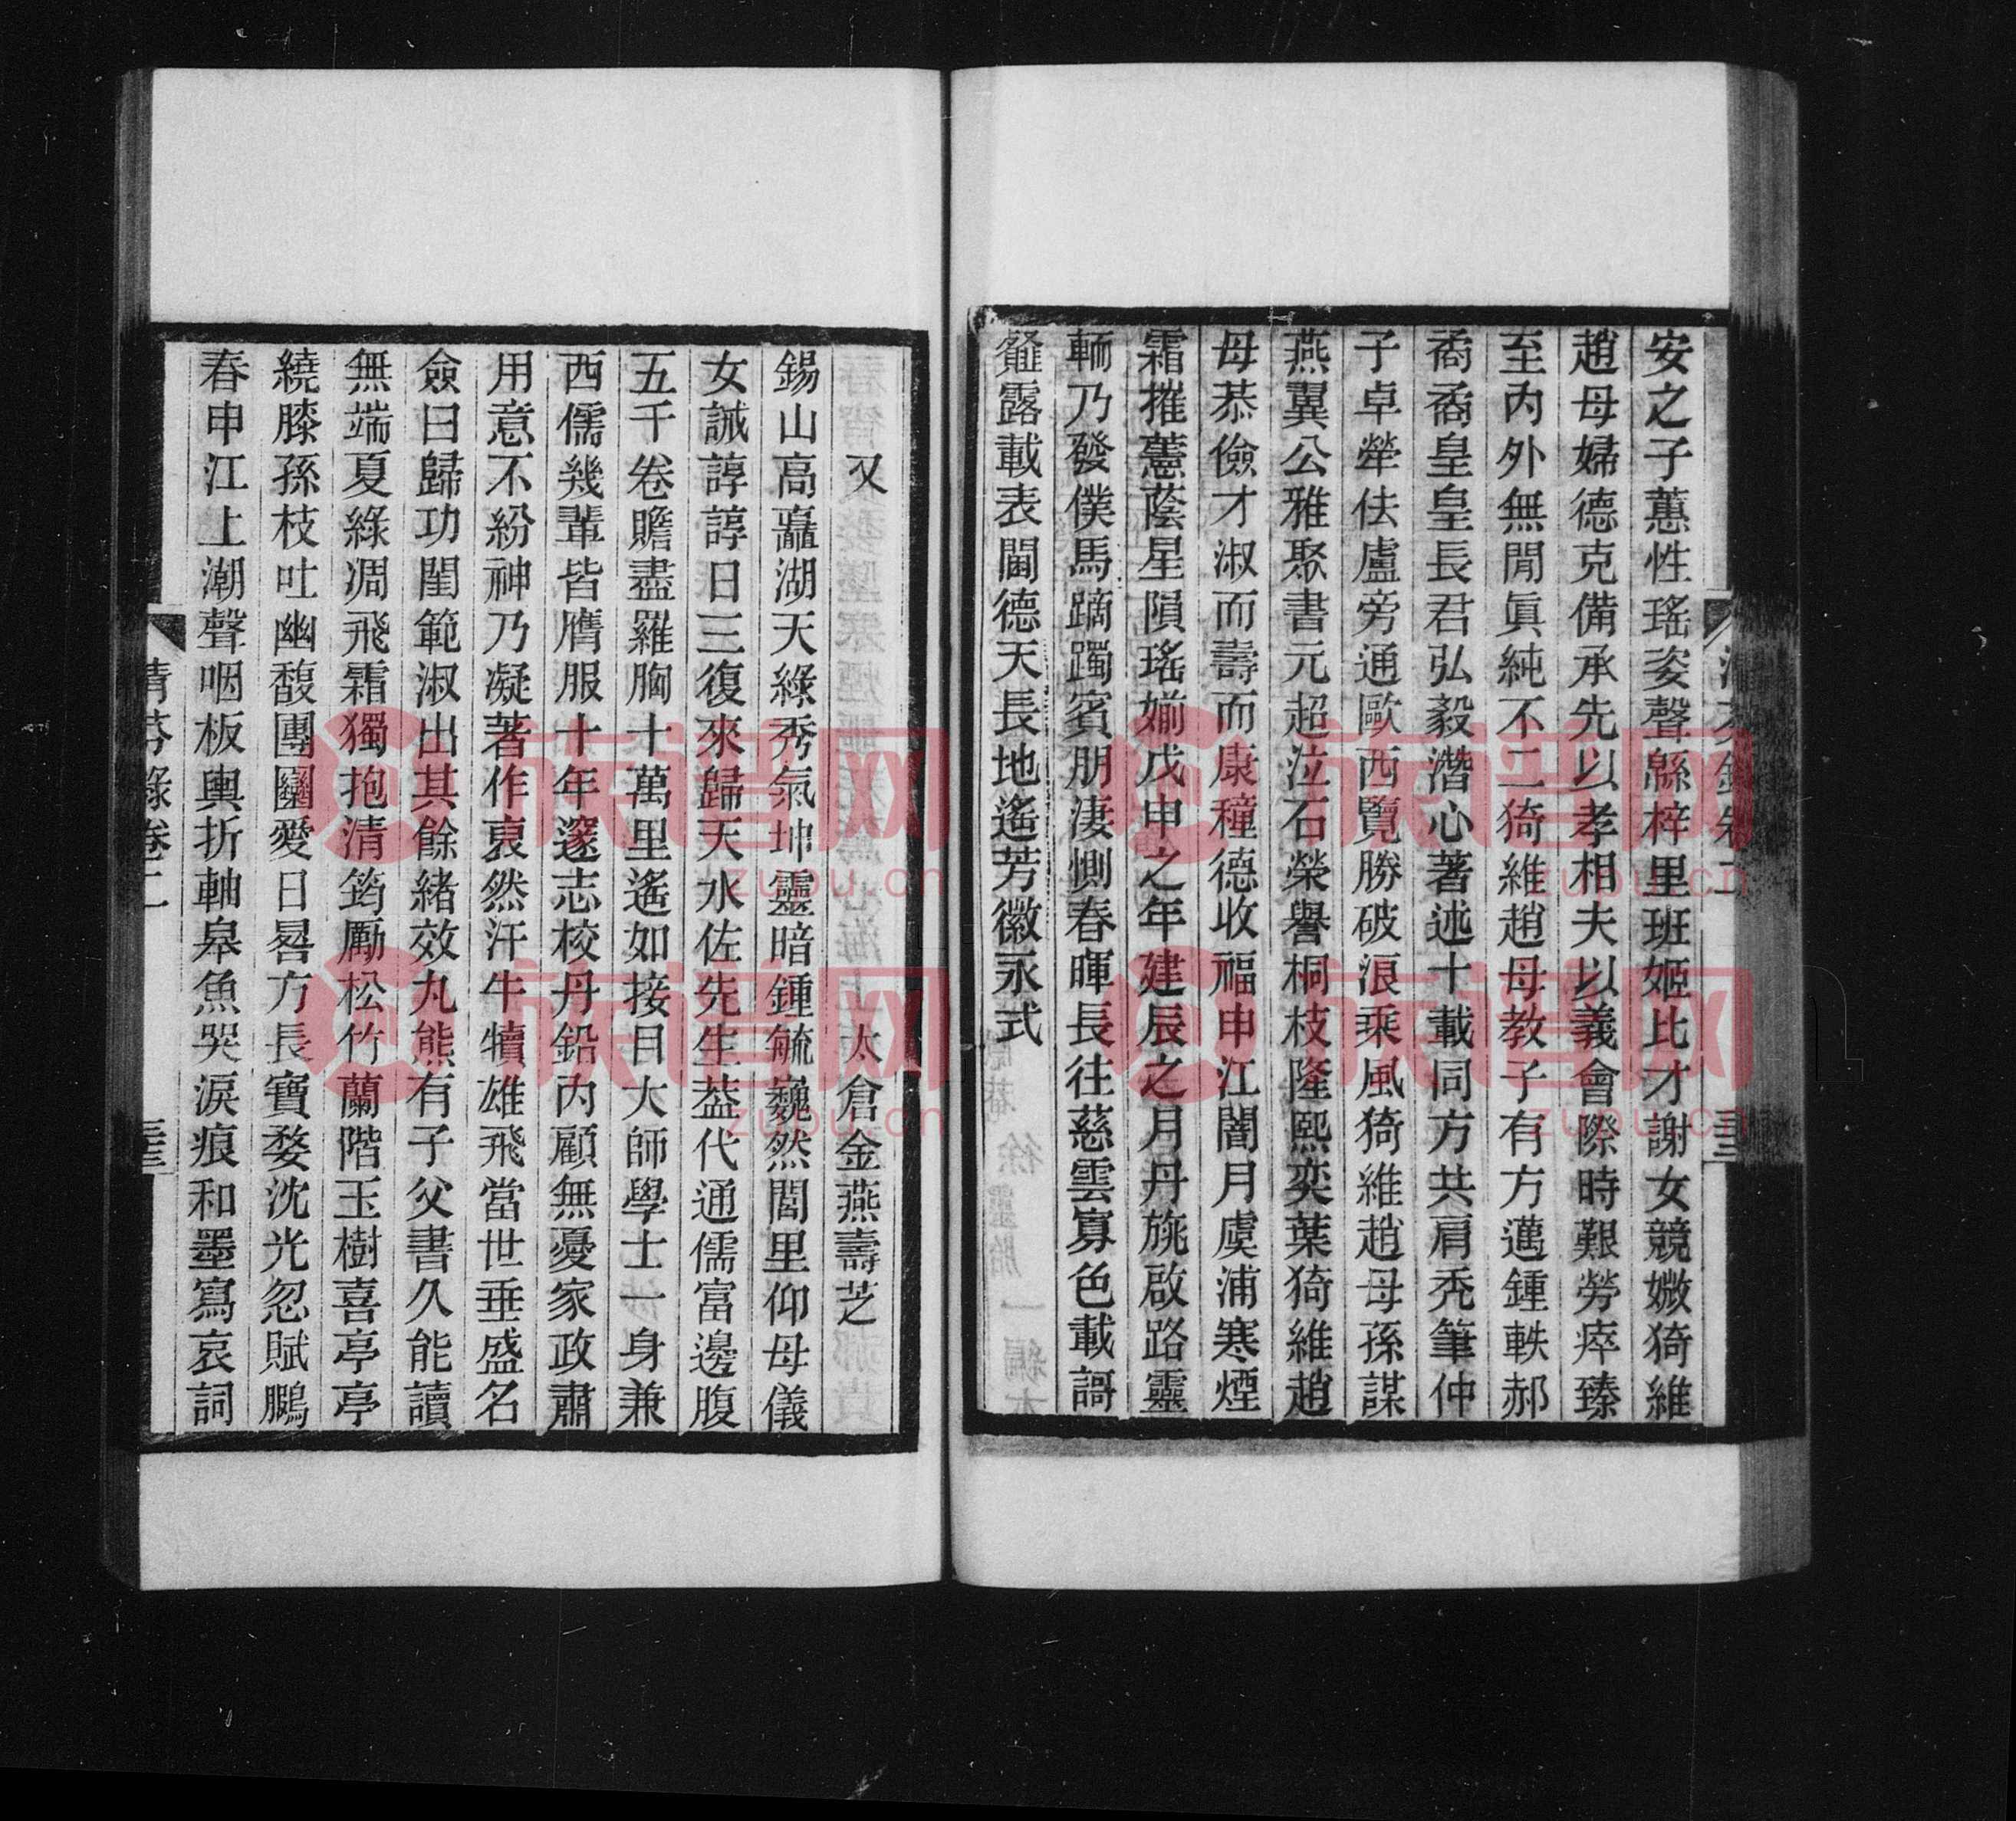 安之子蕙性瑤姿聲緜梓里班姬比才謝女競媺猗維
趙母婦德克備承先以孝相夫以義會際時艱勞瘁臻
至內外無閒眞純不二猗維趙母教子有方邁鍾軼郝
矞矞皇皇長君弘毅潛心著述十載同方共肩禿筆仲
子卓犖佉盧旁通歐西覽勝破浪乘風猗維趙母孫謀
燕翼公雅聚書元超泣石榮譽桐枝隆熙奕葉猗維趙
母恭儉才淑而壽而康穜德收福申江闇月虞浦寒煙
霜摧蕙蔭星隕瑤媊戊申之年建辰之月丹旐啟路靈
輀乃發僕馬蹢躅賓朋淒惻春暉長往慈雲寡色載謌
薤露載表閫德天長地遙芳徽永式
又
太倉金燕壽芝
錫山高矗湖天綠秀氣坤靈暗鍾毓巍然閭里仰母儀
女誡諄諄日三復來歸天水佐先生葢代通儒富邊腹
五千卷贍盡羅胸十萬里遙如接目大師學士一身兼
西儒幾輩皆膺服十年邃志校丹鉛內顧無憂家政肅
用意不紛神乃凝著作裒然汗牛犢雄飛當世垂盛名
僉曰歸功閨範淑出其餘緒效丸熊有子父書久能讀
無端夏綠凋飛霜獨抱清筠厲松竹蘭階玉樹喜亭亭
繞膝孫枝吐幽馥團圞愛日晷方長寶婺沈光忽賦鵩
春申江上潮聲咽板輿折軸皋魚哭淚痕和墨寫哀詞
清芬錄卷二
族谱网
zupu.cn
族谱网
zupu.cn
族谱网
zupu.cn
族谱网
zupu.cn